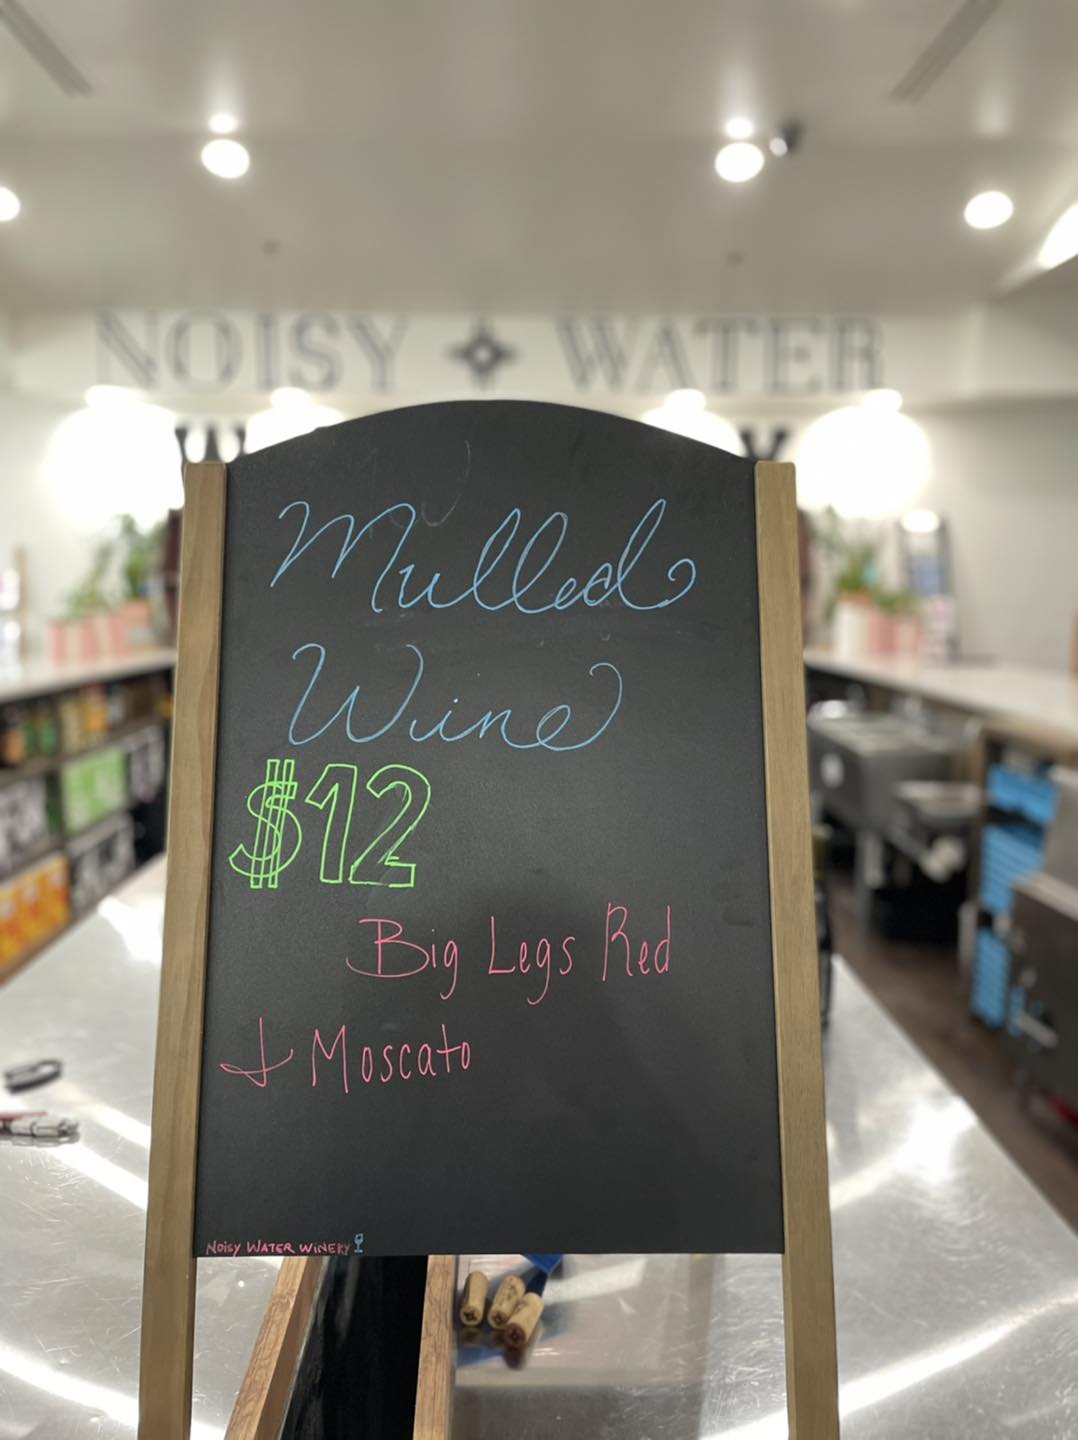 NOISY WATER
Mulled
Wine
$12
Big Legs Red
+ Moscato
NOISY WATER WINERY